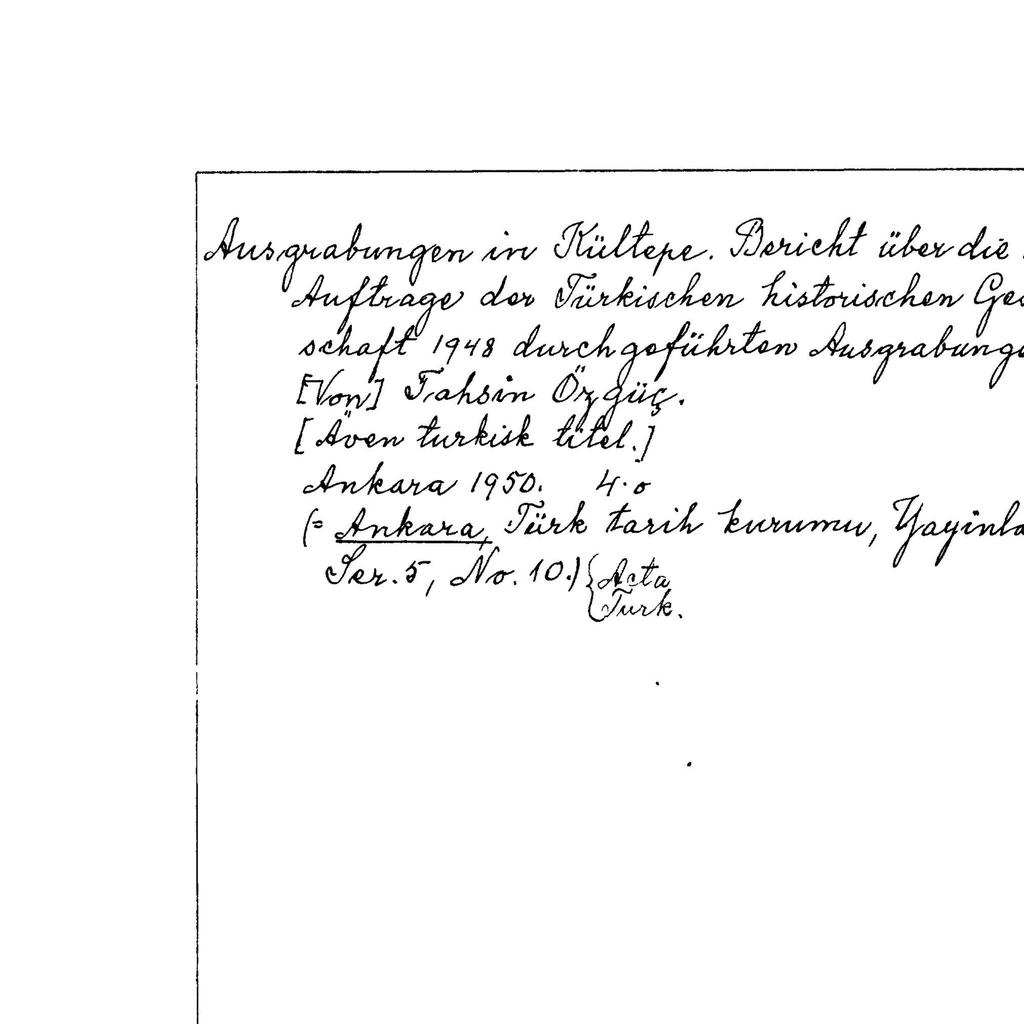 Ausgrabungen in Kültepe. Bericht über die
Auftrage der Türkischen historischen Ges
schaft 1948 durchgeführten Ausgrabunge
[Von] Tahsin Özgüç.
[Även turkisk titel.]
Ankara 1950. 4:o
(= Ankara, Türk tarih kurumu, Yayinla
Ser. 5, No. 10.) {Acta
Turk.